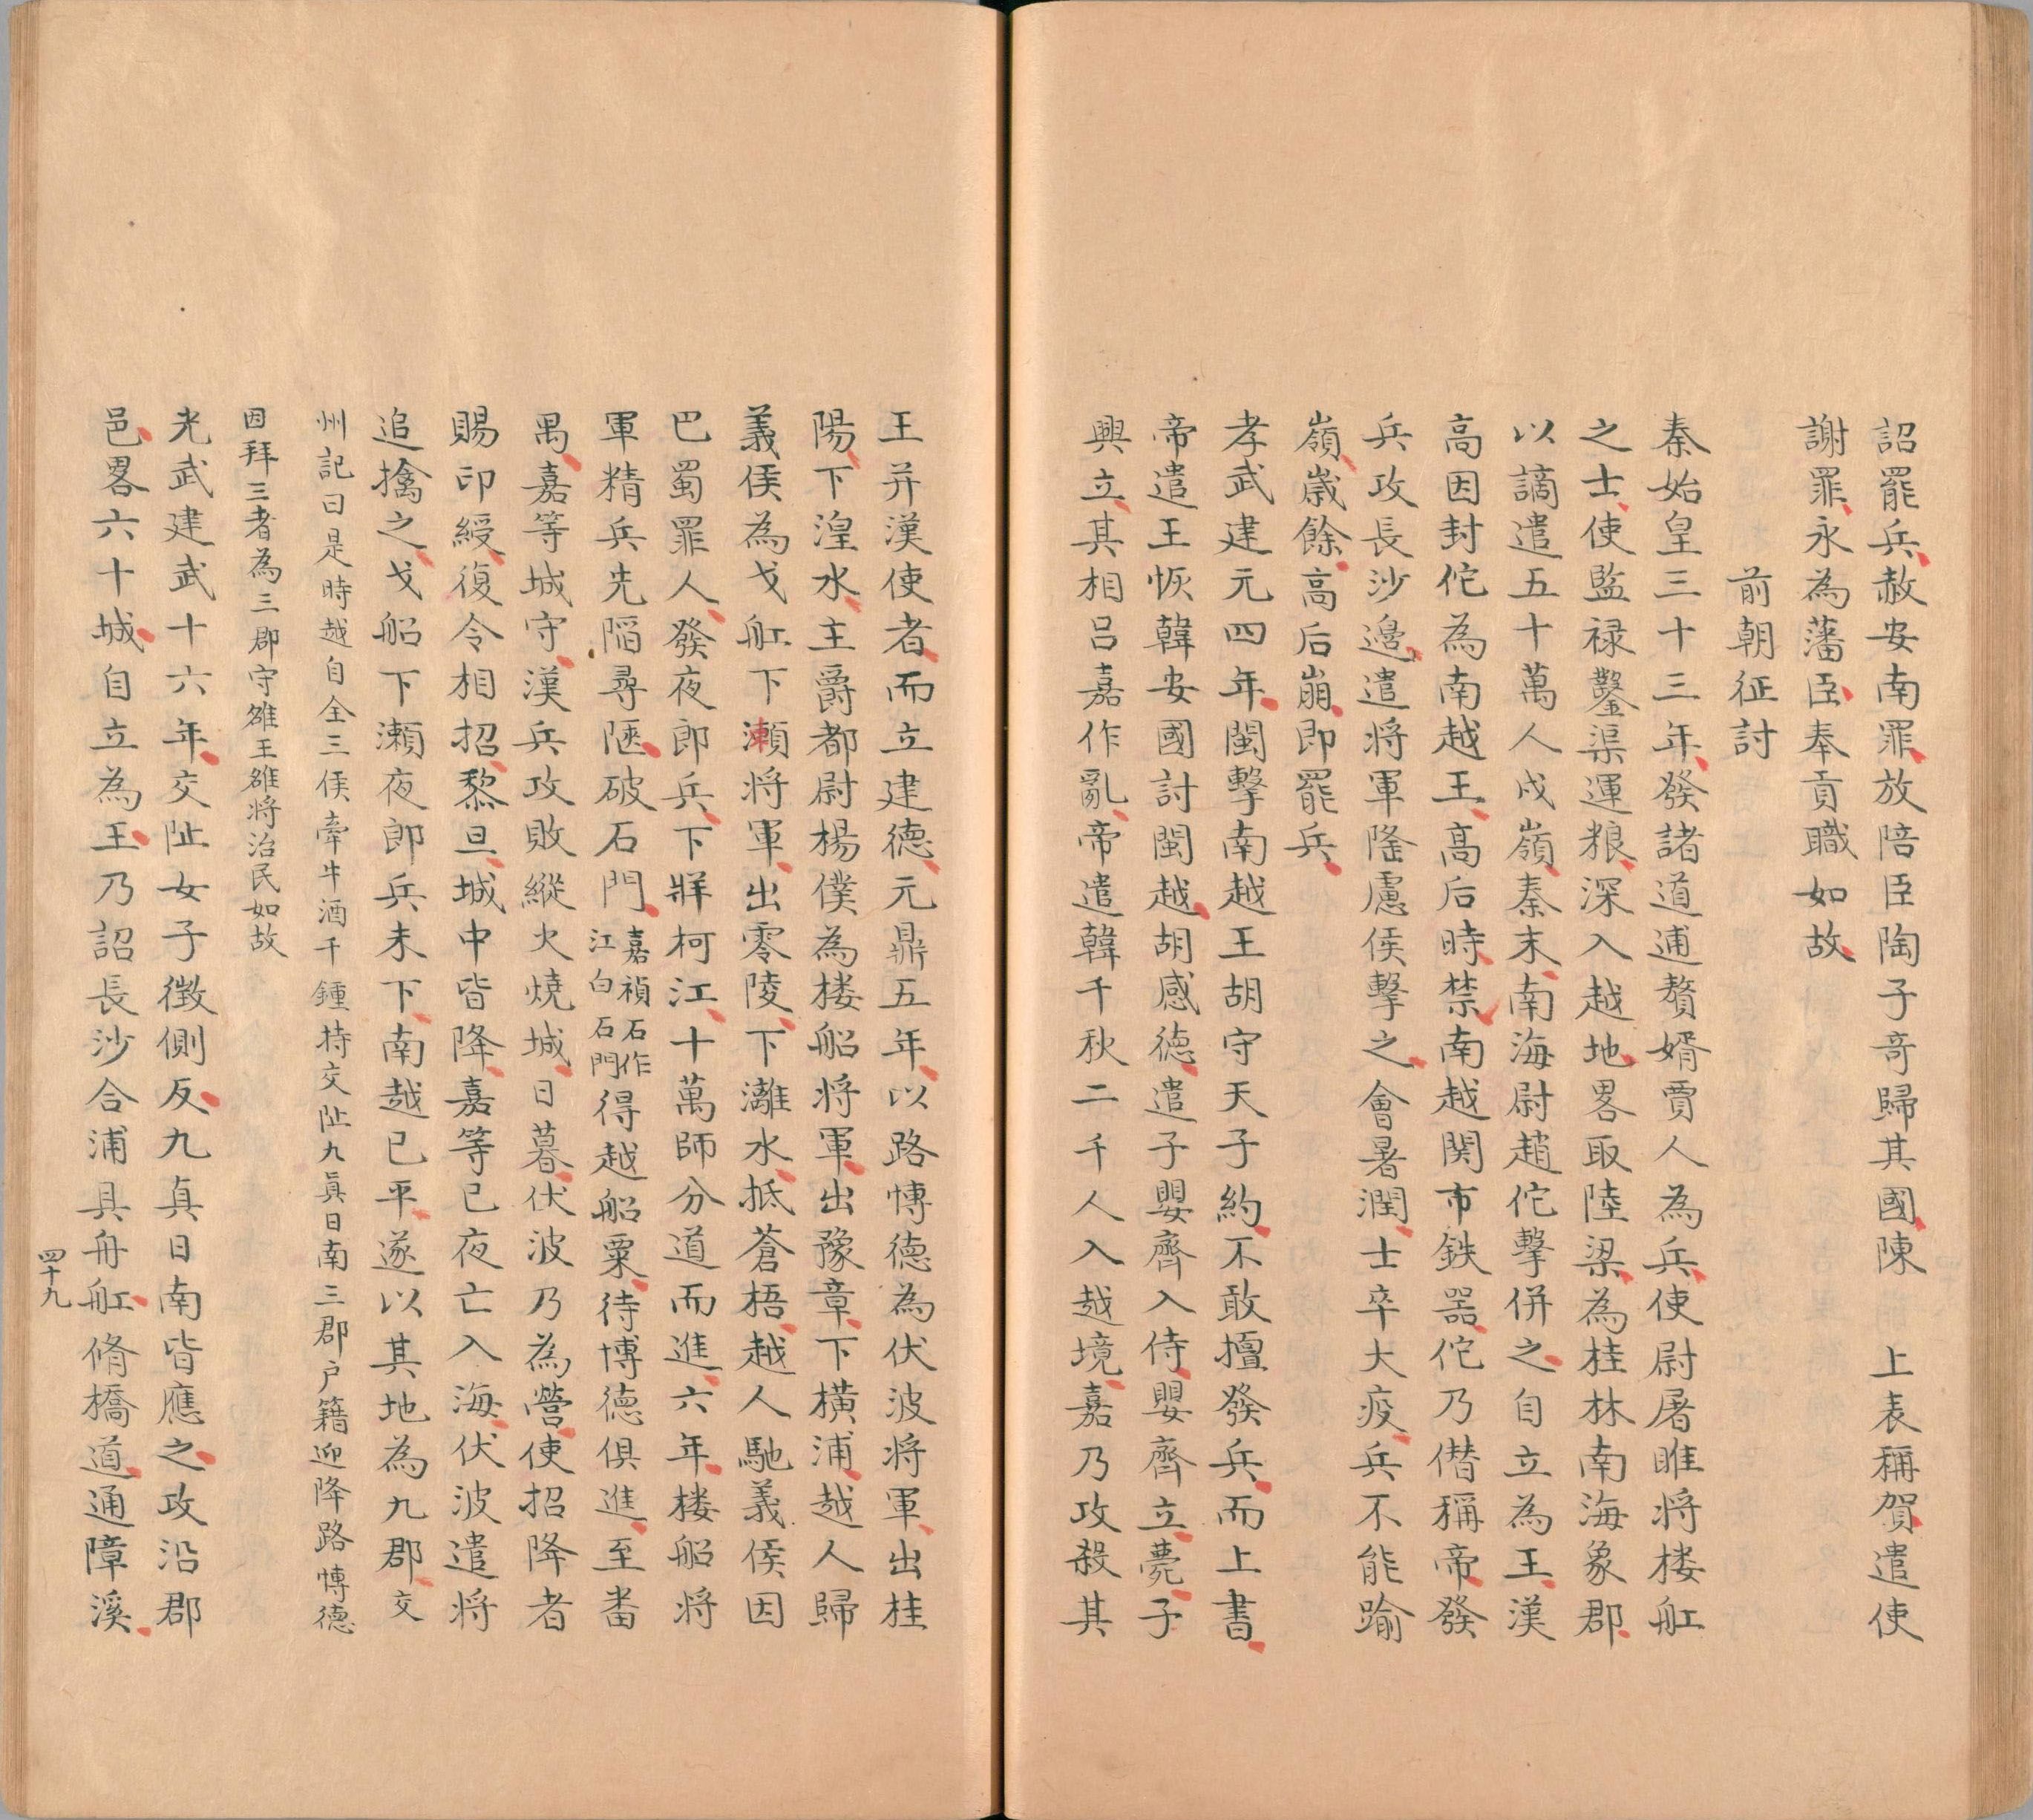 詔罷兵赦安南罪放陪臣陶子竒歸其國陳　上表稱賀遣使
謝罪永為藩臣奉貢職如故
前朝征討
秦始皇三十三年發諸道逋贅婿賈人為兵使尉屠睢將楼舡
之士使監禄鑿渠運粮深入越地畧取陸梁為桂林南海象郡
以謫遣五十萬人戍嶺秦末南海尉趙佗擊併之自立為王漢
高因封佗為南越王高后時禁南越関市鉄噐佗乃僣稱帝發
兵攻長沙邉遣将軍隆慮侯擊之會暑潤士卒大疫兵不能踰
嶺歲餘高后崩即罷兵
孝武建元四年閩擊南越王胡守天子約不敢擅發兵而上書
帝遣王恢韓安國討閩越胡感德遣子嬰齊入侍嬰齊立薨子
興立其相吕嘉作亂帝遣韓千秋二千人入越境嘉乃攻殺其
王并漢使者而立建德元鼎五年以路博德為伏波将軍出桂
陽下湟水主爵都尉楊僕為楼船将軍出豫章下横浦越人歸
義侯為戈舡下瀬将軍出零陵下灕水抵蒼梧越人馳義侯因
巴蜀罪人發夜郎兵下牂柯江十萬師分道而進六年楼船将
軍精兵先䧟尋陿破石門嘉禎石作江白石門得越船粟待博德俱進至畨
禺嘉等城守漢兵攻敗縱火燒城日暮伏波乃為營使招降者
賜印綬復令相招黎旦城中皆降嘉等已夜亡入海伏波遣将
追擒之戈船下瀬夜郎兵未下南越已平遂以其地為九郡交
州記曰是時越自全三侯牽牛酒千鍾持交阯九真日南三郡户籍迎降路博德
因拜三者為三郡守雒王雒将治民如故
光武建武十六年交阯女子徴側反九真日南皆應之攻沿郡
邑畧六十城自立為王乃詔長沙合浦具舟舡脩橋道通障溪
四十九